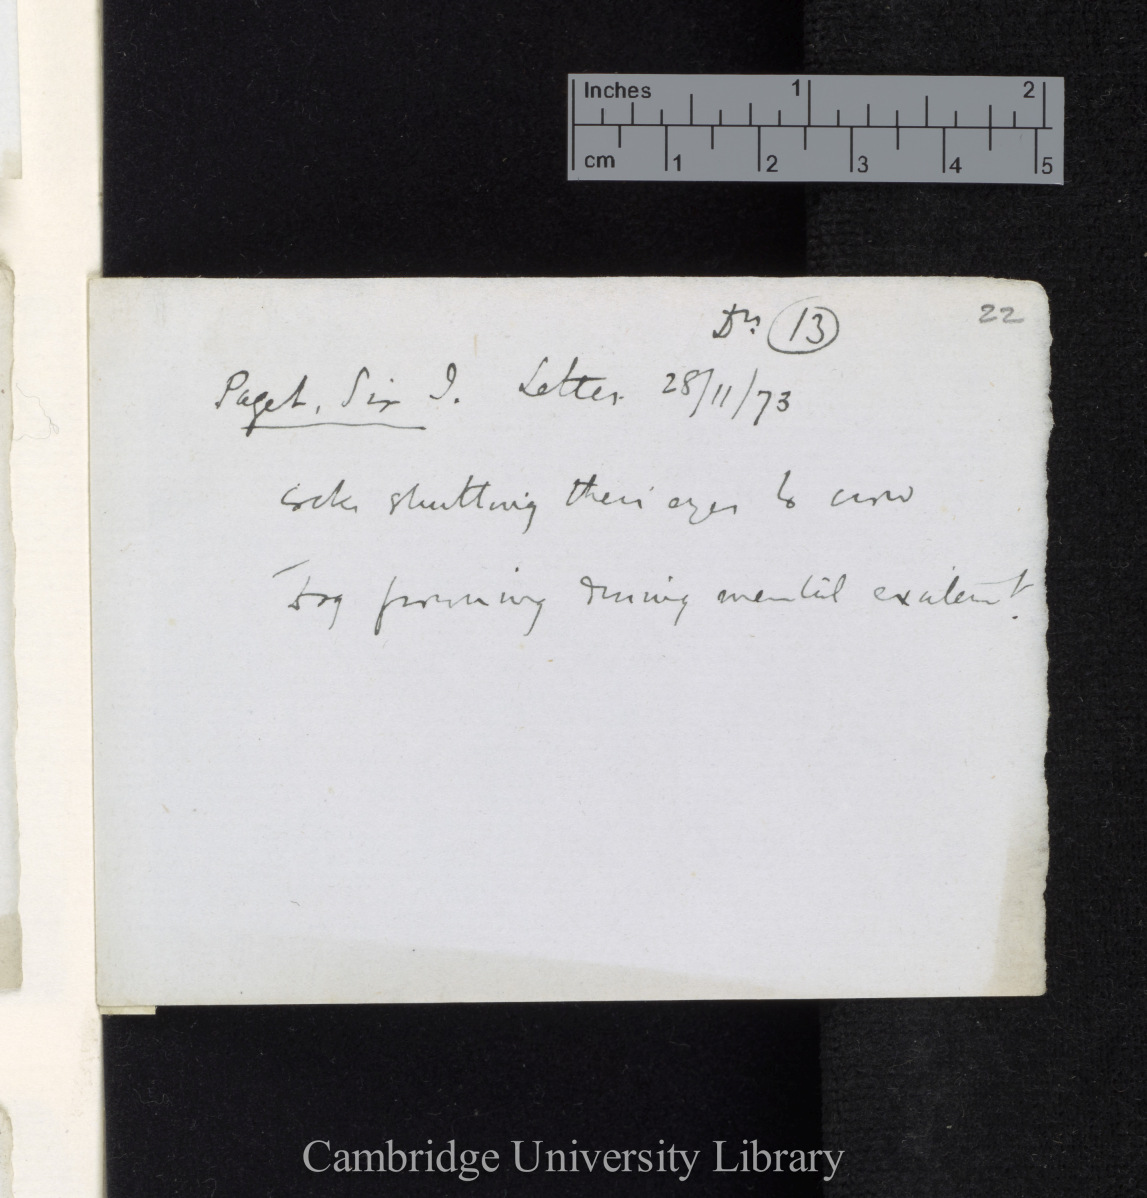 Inches 1 2
cm 1 2 3 4 5
Drs 13 22
Paget, Sir J. Letter 28/11/73
cocks shutting their eyes to crow
Dog frowning during mental excitemt.
Cambridge University Library